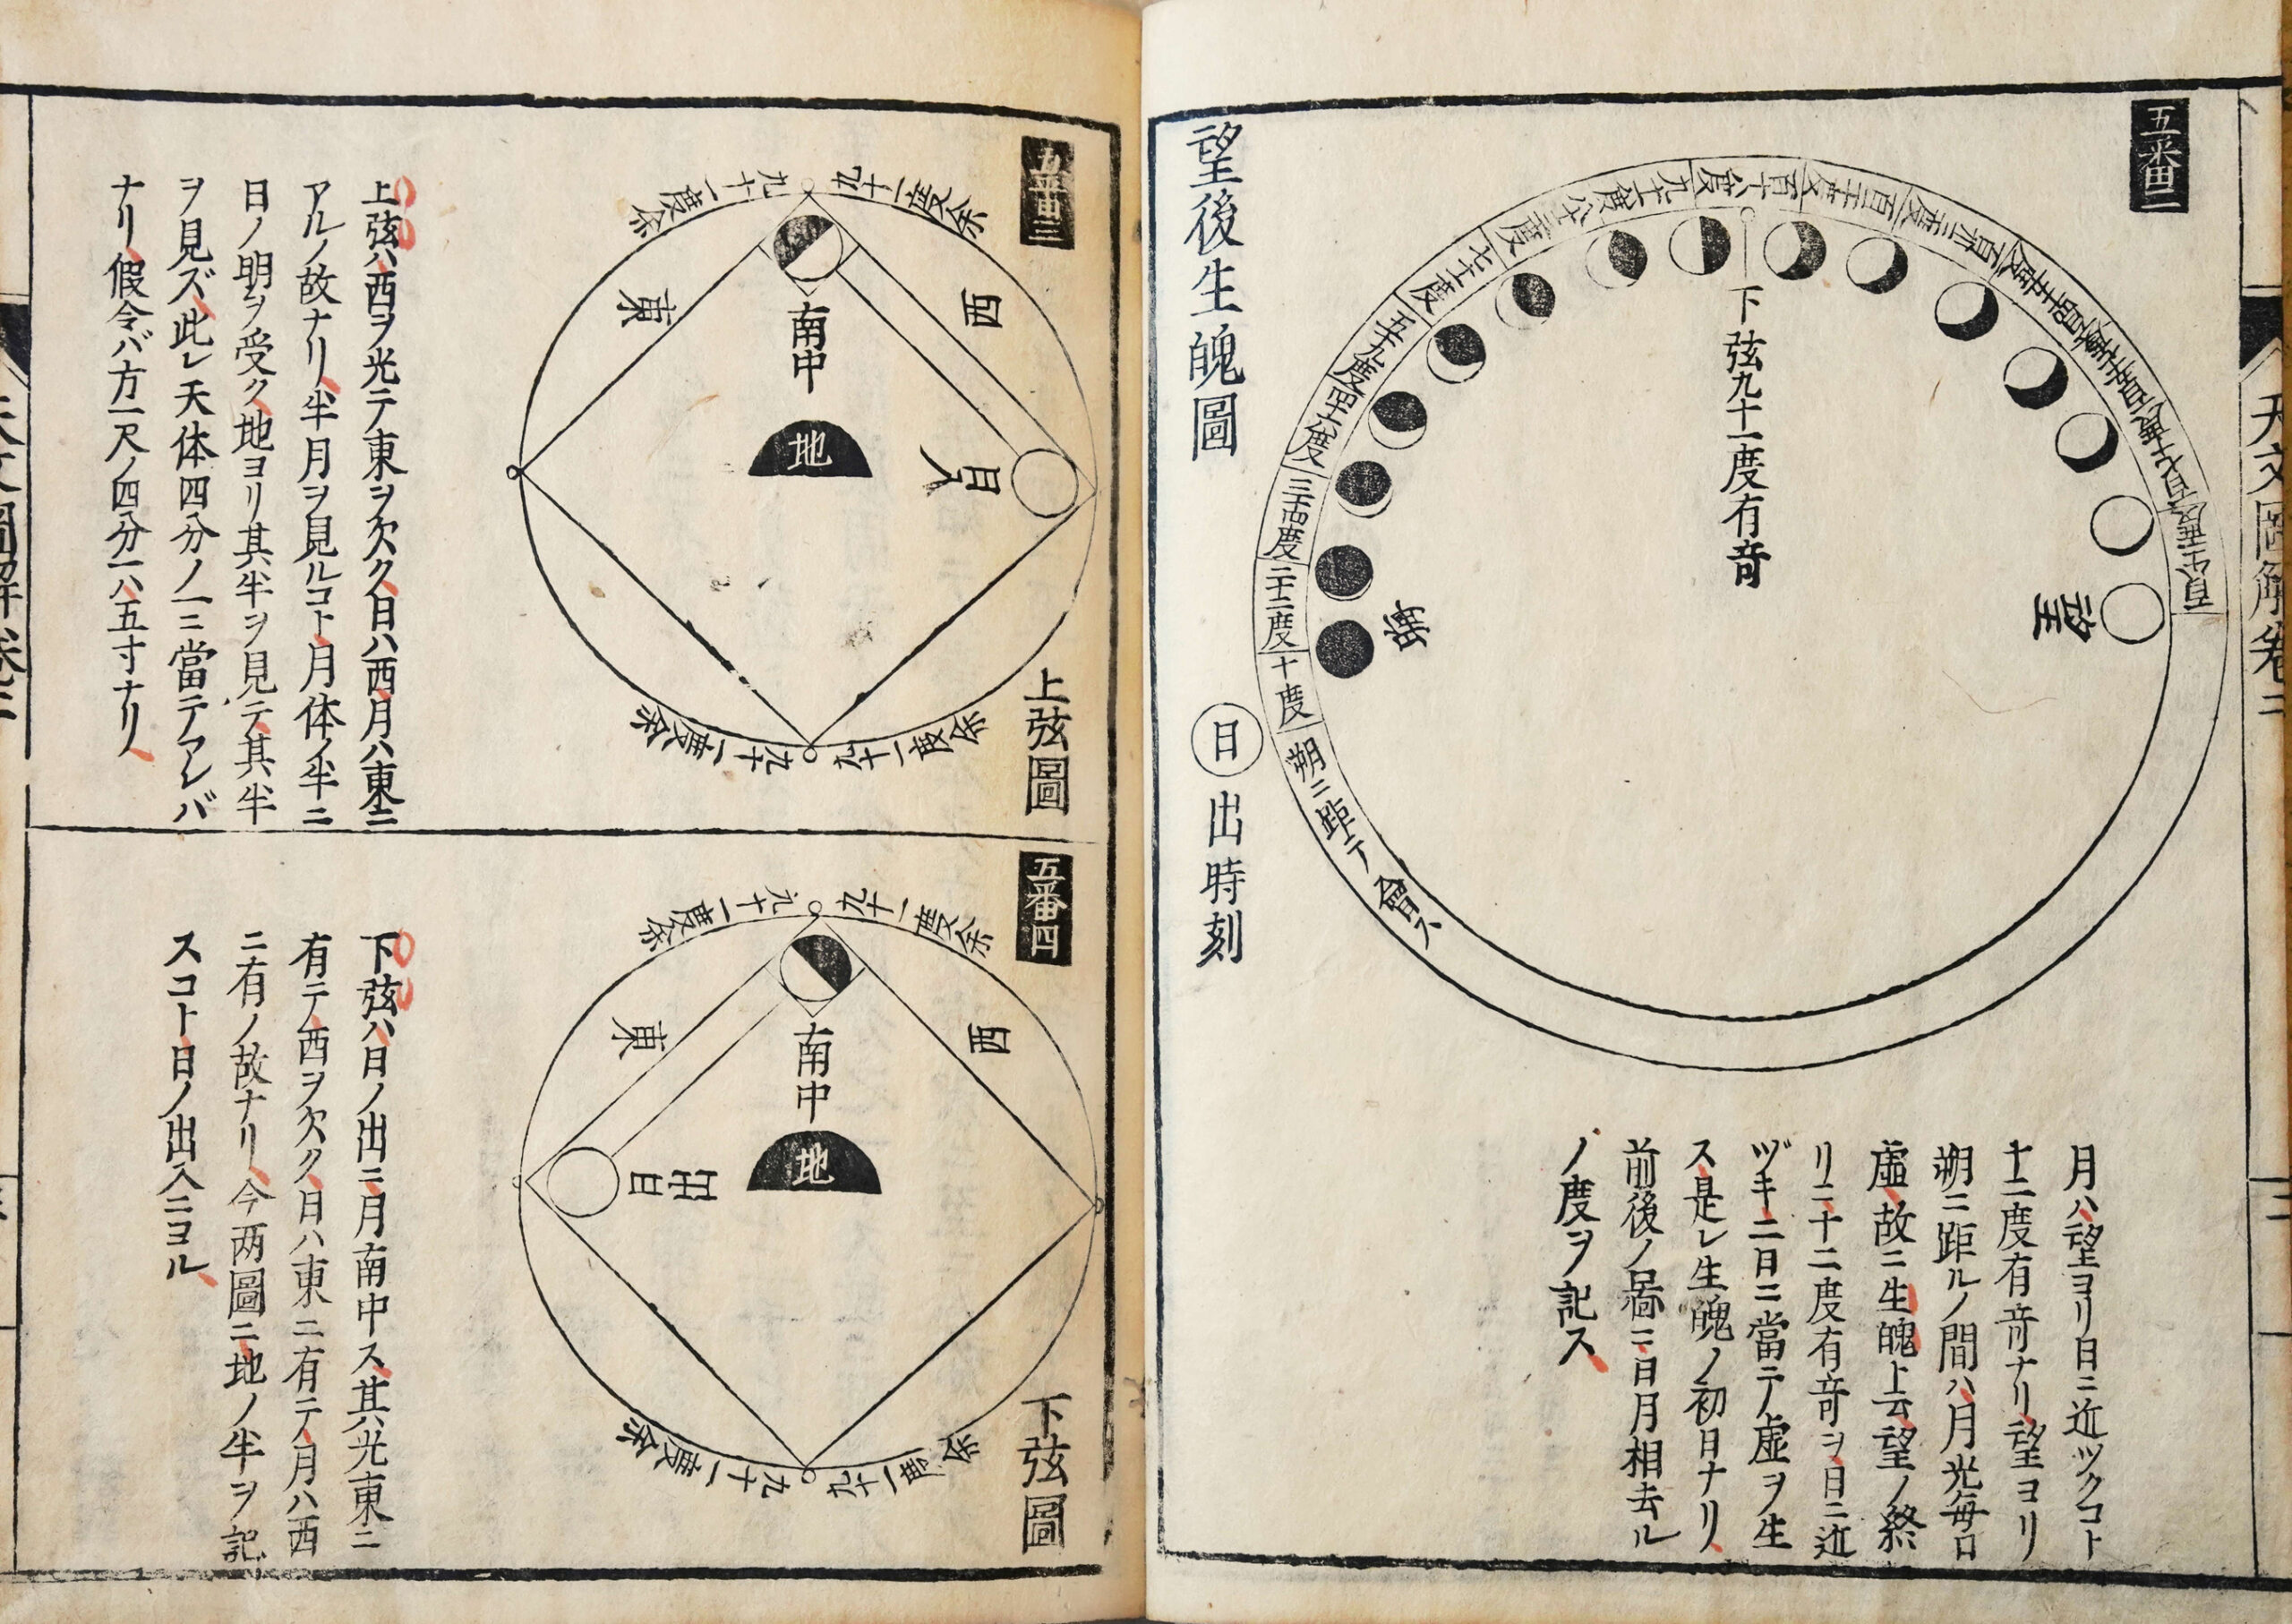 五番二
望後生魄圖
百十八度
九十一度
七十度
五十九度
四十六度
三十四度
二十二度
十度
朔ニ距テ會ス
下弦九十一度有竒
望
日出時刻
月ハ望ヨリ日ニ近ツクコト
十二度有竒ナリ望ヨリ
朔ニ距ルノ間ハ月光毎日
虚故ニ生魄ト云望ノ終
リニ十二度有竒ヲ日ニ近
ヅキ二日ニ當テ虚ヲ生
ス是レ生魄ノ初日ナリ
前後ノ圖ニ日月相去ル
ノ度ヲ記ス
天文圖解卷二
五番三
上弦圖
九十一度余
九十一度余
九十一度余
九十一度余
東
西
南中
地
日入
上弦ハ西ヲ光テ東ヲ欠ク日ハ西月ハ東ニ
アルノ故ナリ半月ヲ見ルコト月体ノ半ニ
日ノ明ヲ受ク地ヨリ其半ヲ見テ其半
ヲ見ズ此レ天体四分ノ一ニ當テアレバ
ナリ假令バ方一尺ノ四分一ハ五寸ナリ
五番四
下弦圖
九十一度余
九十一度余
九十一度余
九十一度余
東
西
南中
地
日出
下弦ハ日ノ出ニ月南中ス其光東ニ
有テ西ヲ欠ク日ハ東ニ有テ月ハ西
ニ有ノ故ナリ今两圖ニ地ノ半ヲ記
スコト日ノ出入ニヨル